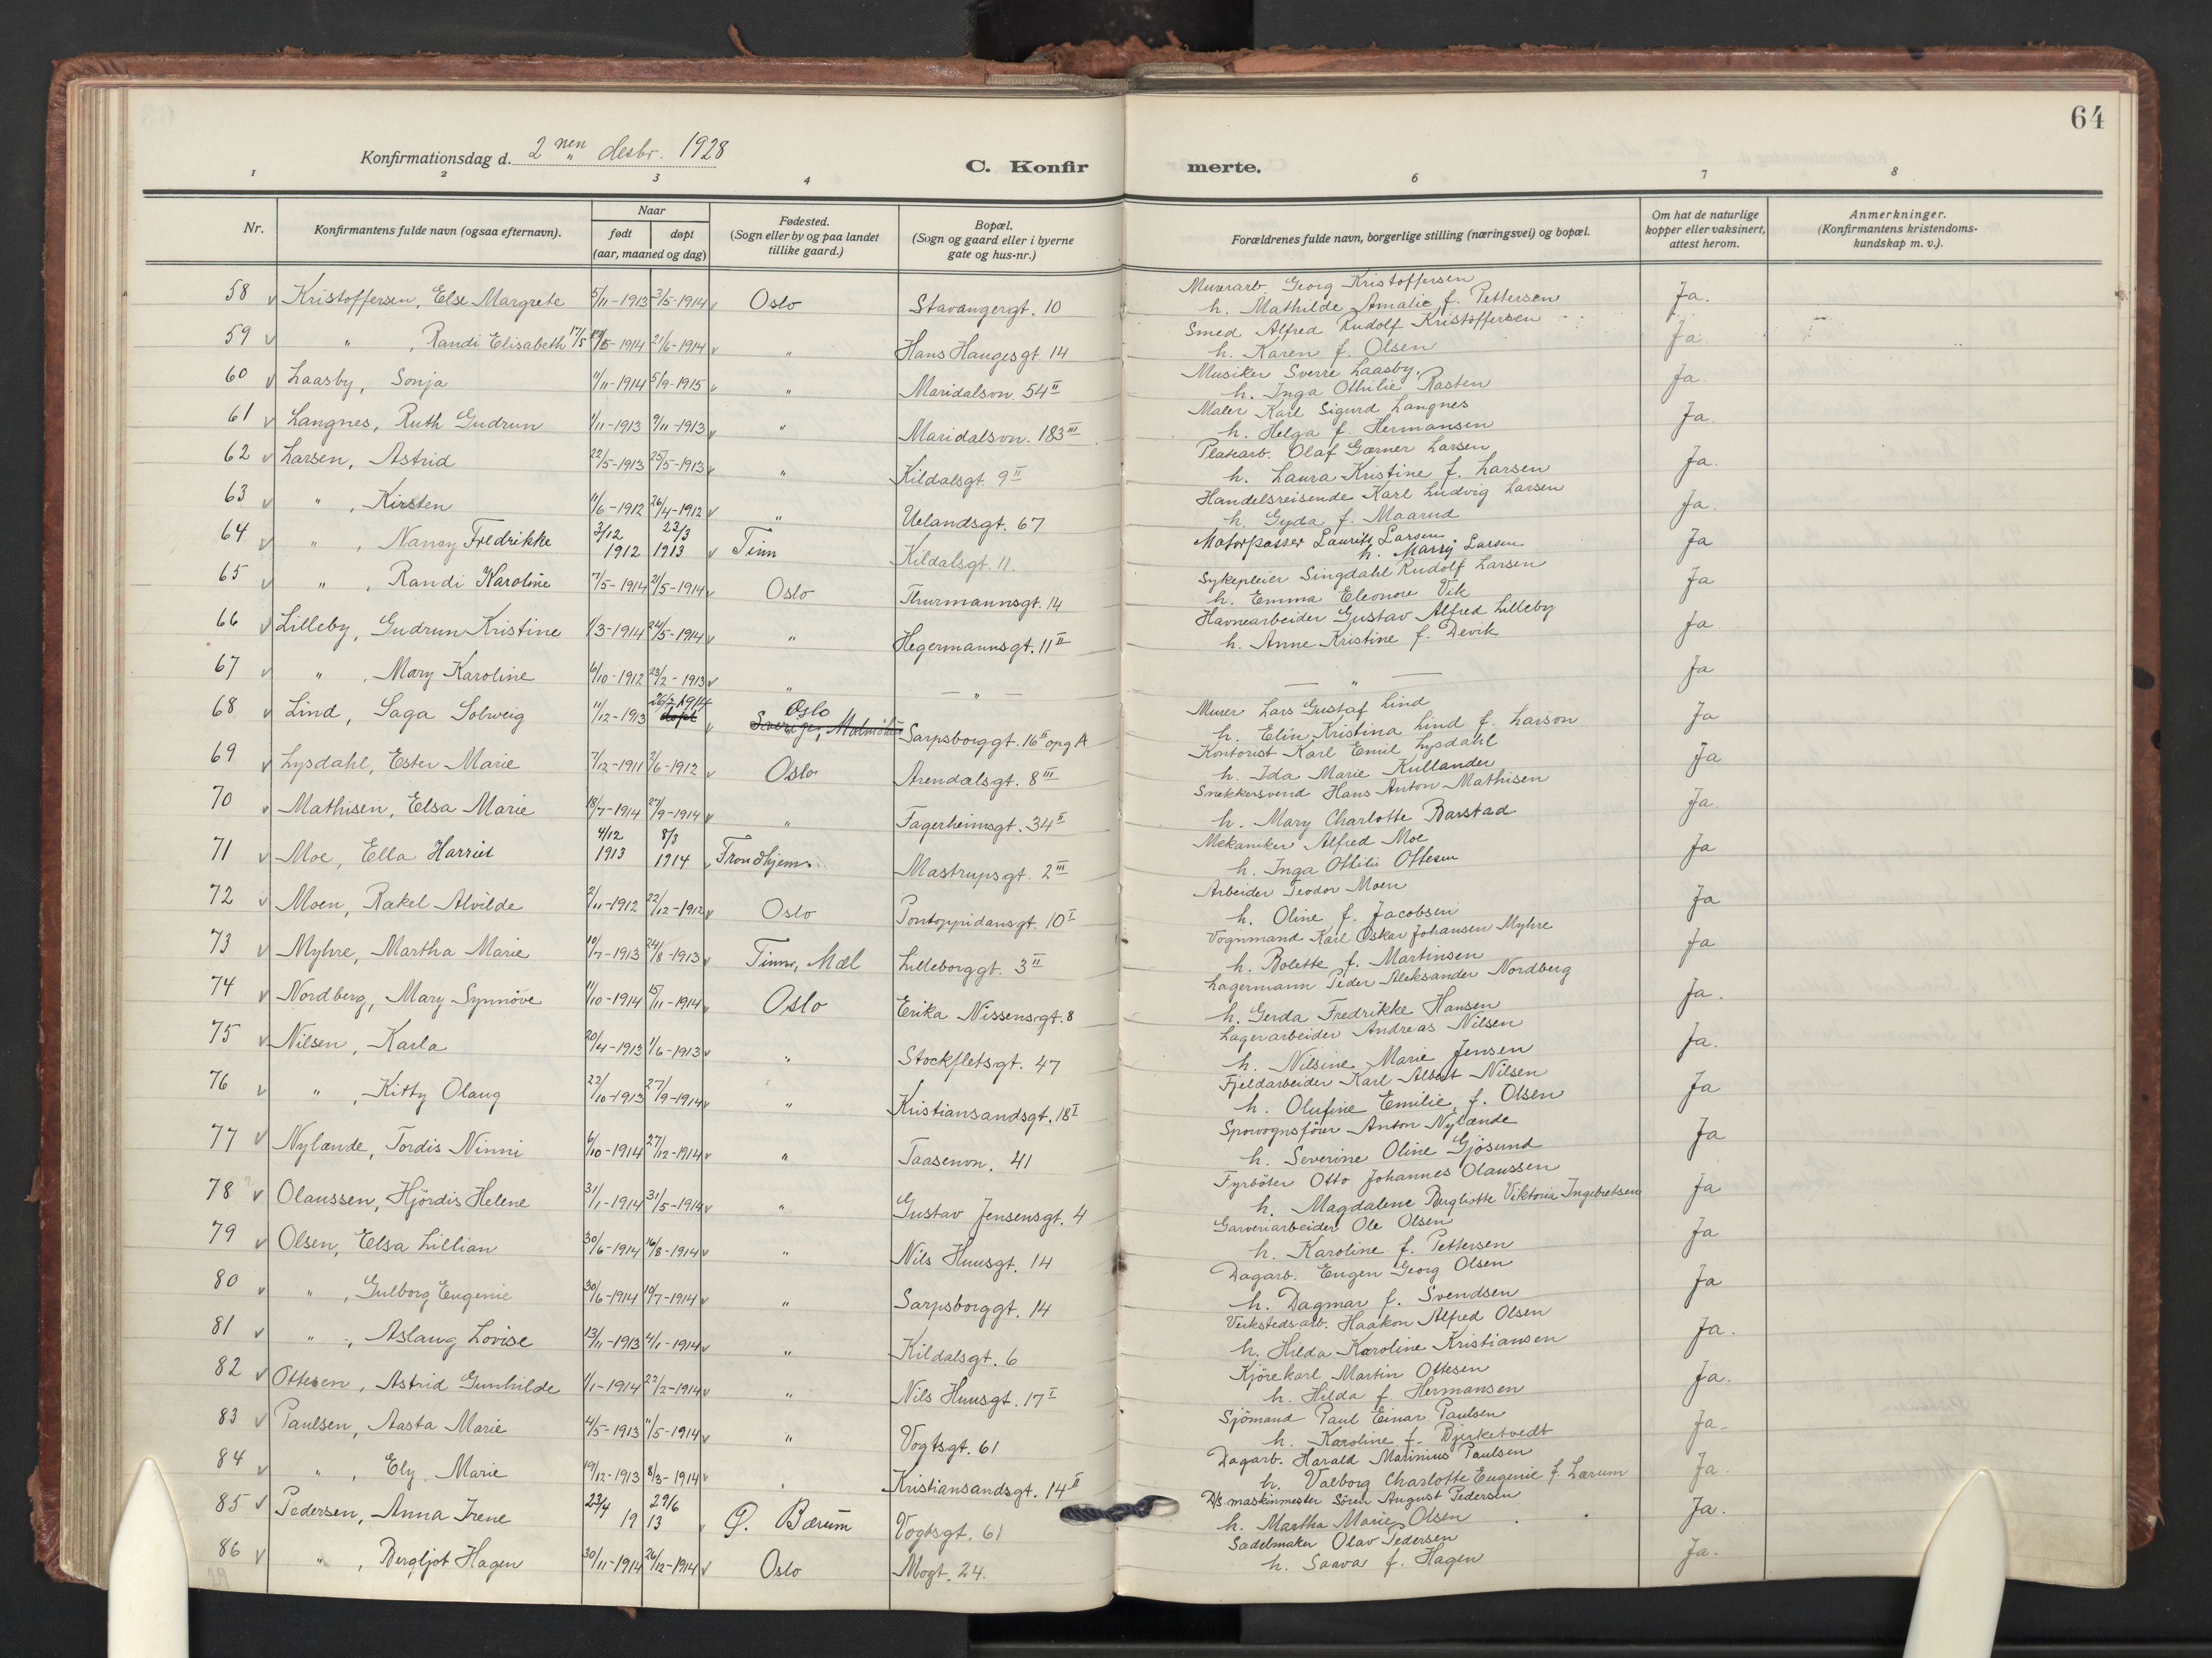 64
Konfirmationsdag d. 2 nen desbr. 1928
C. Konfir merte.
1 2 3 4 6 7 8
Nr.
Konfirmantens fulde navn (ogsaa efternavn).
Naar
født døpt
(aar, maaned og dag)
Fødested.
(Sogn eller by og paa landet
tillike gaard.)
Bopæl.
(Sogn og gaard eller i byerne
gate og hus-nr.)
Forældrenes fulde navn, borgerlige stilling (næringsvei) og bopæl.
Om hat de naturlige
kopper eller vaksinert,
attest herom.
Anmerkninger.
(Konfirmantens kristendoms-
kundskap m. v.).
58 v Kristoffersen, Else Margrete 5/11-1913 3/5-1914 v Oslo Stavangergt. 10 Murerarb. Georg Kristoffersen
h. Mathilde Amalie f. Pettersen Ja.
59 v " , Randi Elisabeth 17/5 -1914 21/6-1914 v " Hans Haugesgt. 14 Smed Alfred Rudolf Kristoffersen
h. Karen f. Olsen Ja.
60 v Laasby, Sonja 11/11-1914 5/9-1915 v " Maridalsvn. 54 II Musiker Sverre Laasby.
h. Inga Othilie Rasten Ja.
61 v Langnes, Ruth Gudrun 1/11-1913 9/11-1913 v " Maridalsvn. 183 III Maler Karl Sigurd Langnes
h. Helga f. Hermansen Ja.
62 v Larsen, Astrid 22/5-1913 25/5-1913 v " Kildalsgt. 9 II Platearb. Olaf Garner Larsen
h. Laura Kristine f. Larsen Ja.
63 v " , Kirsten 11/6-1912 26/4-1912 v " Uelandsgt. 67 Handelsreisende Karl Ludvig Larsen
h. Gyda f. Maarud Ja.
64 v " , Nancy Fredrikke 3/12 1912 23/3 1913 v Tinn Kildalsgt. 11. Motorpasser Laurits Larsen
h. Marry Larsen Ja
65 v " , Randi Karoline 7/5-1914 21/5-1914 v Oslo Thurmannsgt. 14 Sykepleier Singdahl Rudolf Larsen
h. Emma Eleonore Vik Ja
66 v Lilleby, Gudrun Kristine 1/3-1914 24/5-1914 v " Hegermannsgt. 11 II Havnearbeider Gustav Alfred Lilleby
h. Anne Kristine f. Devik Ja
67 v " , Mary Karoline 6/10-1912 23/2-1913 v " — " — — " — Ja
68 v Lind, Saga Solveig 11/12-1913 26/2 1914 døpt v Oslo Sverige, Malmöhus Sarpsborggt. 16 II opg A Murer Lars Gustaf Lind
h. Elin Kristina Lind f. Larson Ja
69 v Lysdahl, Ester Marie 7/12-1911 2/6-1912 v Oslo Arendalsgt. 8 III Kontorist Karl Emil Lysdahl
h. Ida Marie Kullander Ja
70 v Mathisen, Elsa Marie 18/7-1914 27/9-1914 v " Fagerheimsgt. 34 II Snekkersvend Hans Anton Mathisen
h. Mary Charlotte Barstad Ja.
71 v Moe, Ella Harriet 4/12 1913 8/3 1914 v Trondhjem Mastrupsgt. 2 III Mekaniker Alfred Moe
h. Inga Ottilie Ottesen Ja
72 v Moen, Rakel Alvilde 2/11-1912 22/12-1912 v Oslo Pontoppidansgt. 10 I Arbeider Teodor Moen
h. Oline f. Jacobsen Ja
73 v Myhre, Martha Marie 10/7-1913 24/8-1913 v Tinn, Mæl Lilleborggt. 3 II Vognmand Karl Oskar Johansen Myhre
h. Bolette f. Martinsen Ja
74 v Nordberg, Mary Synnöve 11/10-1914 15/11-1914 v Oslo Erika Nissensgt. 8 Lagermann Peder Aleksander Nordberg
h. Gerda Fredrikke Hansen Ja.
75 v Nilsen, Karla 20/4-1913 1/6-1913 v " Stockfletsgt. 47 Lagerarbeider Andreas Nilsen
h. Nilsine Marie Jensen Ja.
76 v " , Kitty Olaug 22/10-1913 27/9-1914 v " Kristiansandsgt. 18 I Fjeldarbeider Karl Albert Nilsen
h. Olufine Emilie f. Olsen Ja
77 v Nylænde, Tordis Ninni 6/10-1914 27/12-1914 v " Taasenvn. 41 Sporvognsförer Anton Nylænde
h. Severine Oline Gjösund Ja
78 v Olaussen, Hjördis Helene 31/1-1914 31/5-1914 v " Gustav Jensensgt. 4 Fyrböter Otto Johannes Olaussen
h. Magdalene Bergliotte Viktoria Ingebretsen Ja
79 v Olsen, Elsa Lillian 30/6-1914 16/8-1914 v " Nils Huusgt. 14 Garveriarbeider Ole Olsen
h. Karoline f. Pettersen Ja
80 v " , Gulborg Eugenie 30/6-1914 19/7-1914 v " Sarpsborggt. 14 Dagarb. Eugen Georg Olsen
h. Dagmar f. Svendsen Ja
81 v " , Aslaug Lovise 13/11-1913 4/1-1914 v " Kildalsgt. 6 Verkstedsarb. Haakon Alfred Olsen
h. Hilda Karoline Kristiansen Ja.
82 v Ottesen, Astrid Gunhilde 1/1-1914 22/2-1914 v " Nils Huusgt. 17 I Kjörekarl Martin Ottesen
h. Hilda f. Hermansen Ja.
83 v Paulsen, Aasta Marie 4/5-1913 11/5-1914 v " Vogtsgt. 61 Sjömand Paul Einar Paulsen
h. Karoline f. Bjerketvedt Ja-
84 v " , Ely Marie 19/12-1913 8/3-1914 v " Kristiansandsgt. 14 II Dagarb. Harald Marinius Paulsen
h. Valborg Charlotte Eugenie f. Larum Ja.
85 v Pedersen, Anna Irene 23/4 29/6 1913 v Ø. Bærum Vogtsgt. 61 D/S. maskinmester Sören August Pedersen
h. Martha Marie Olsen Ja.
86 v " , Bergljot Hagen 30/11-1914 26/12-1914 v Oslo Mogt. 24. Sadelmaker Olav Pedersen
h. Saava f. Hagen Ja.